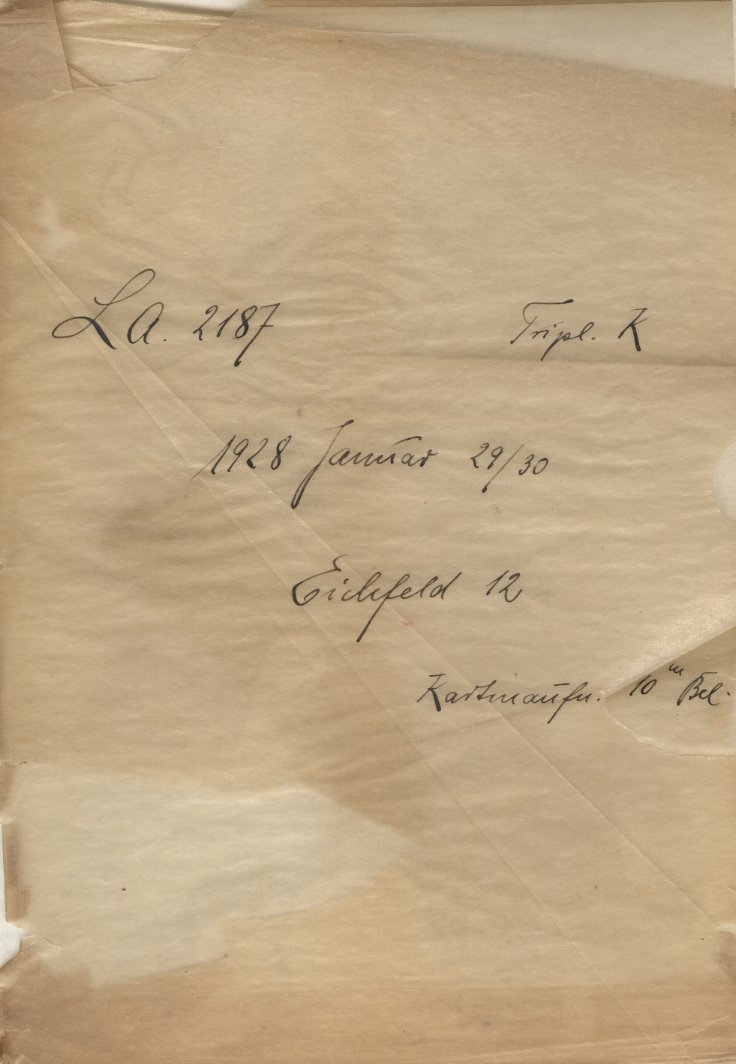 L A. 2187 Tripl. K
1928 Januar 29/30
Eichfeld 12
Kartenaufn. 10m Bel.